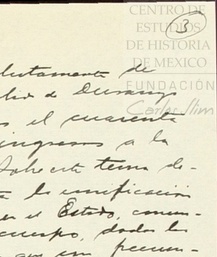 CENTRO DE
ESTUDIOS
DE HISTORIA
DE MEXICO
FUNDACIÓN
Carlos Slim
3
de
de Durango
el cuarenta
ingresos a la
Sobre este tema de-
la unificación
en el Estado, comun-
cuerpo, dadas las
que un pecun-